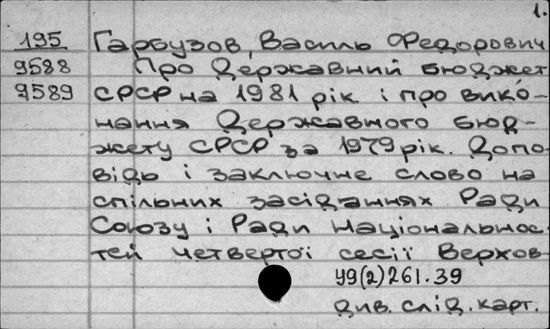 1.
195 Гарбузов, Василь Федорович
9588 Про Державний бюджет
9589 СРСР на 1981 рік і про вико-
нання Державного бюд-
жету СРСР за 1979 рік. Допо-
відь і заключне слово на
спільних засіданнях Ради
Союзу і Ради Національнос-
тей четвертої сесії Верхов-
У9(2)261.39
див. слід. карт.